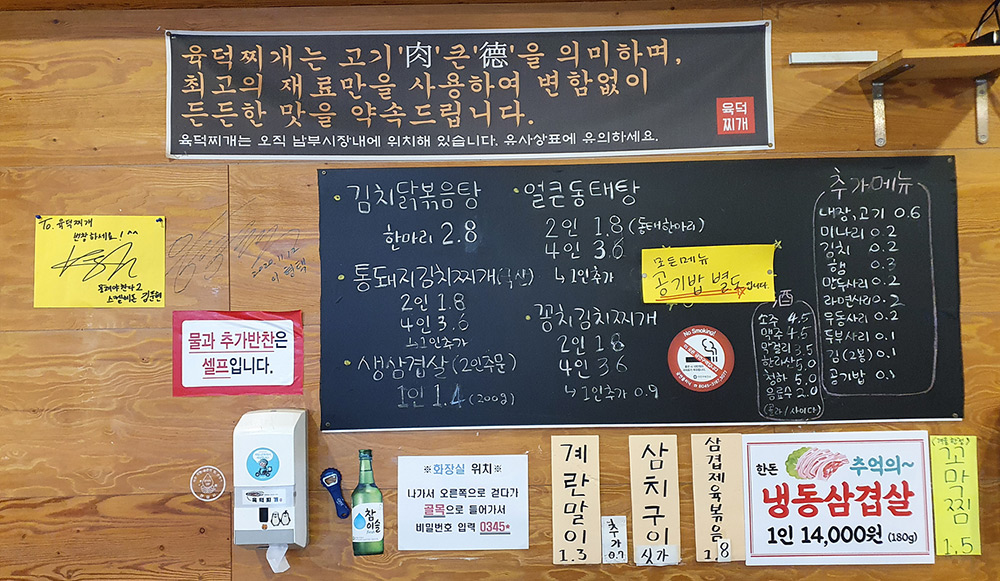 육덕찌개는 고기'肉'큰'德'을 의미하며,
최고의 재료만을 사용하여 변함없이
든든한 맛을 약속드립니다.
육덕찌개는 오직 남부시장내에 위치해 있습니다. 유사상표에 유의하세요.
육덕
찌개
To. 육덕찌개
번창하세요! ^^
2022.11.12
이형택
물과 추가반찬은
셀프입니다.
김치닭볶음탕
한마리 2.8
통돼지김치찌개(국산)
2인 1.8
4인 3.6
↳1인추가
생삼겹살(2인주문)
1인 1.4 (200g)
얼큰동태탕
2인 1.8 (동태한마리)
4인 3.6
↳1인추가
꽁치김치찌개
2인 1.8
4인 3.6
↳1인추가 0.9
모든메뉴
공기밥 별도입니다.
No Smoking!
酒
소주 4.5
맥주 4.5
막걸리 3.5
한라산 5.0
청하 5.0
음료수 2.0
(콜라/사이다)
추가메뉴
내장,고기 0.6
미나리 0.2
김치 0.2
햄 0.3
만두사리 0.2
라면사리 0.2
우동사리 0.2
두부사리 0.1
김(2봉) 0.1
공기밥 0.1
육덕찌개
참이슬
※화장실 위치※
나가서 오른쪽으로 걷다가
골목으로 들어가서
비밀번호 입력 0345*
계란말이
1.3
추가
0.7
삼치구이
싯가
삼겹제육볶음
1.8
한돈 추억의~
냉동삼겹살
1인 14,000원 (180g)
(겨울한정)
꼬막찜
1.5